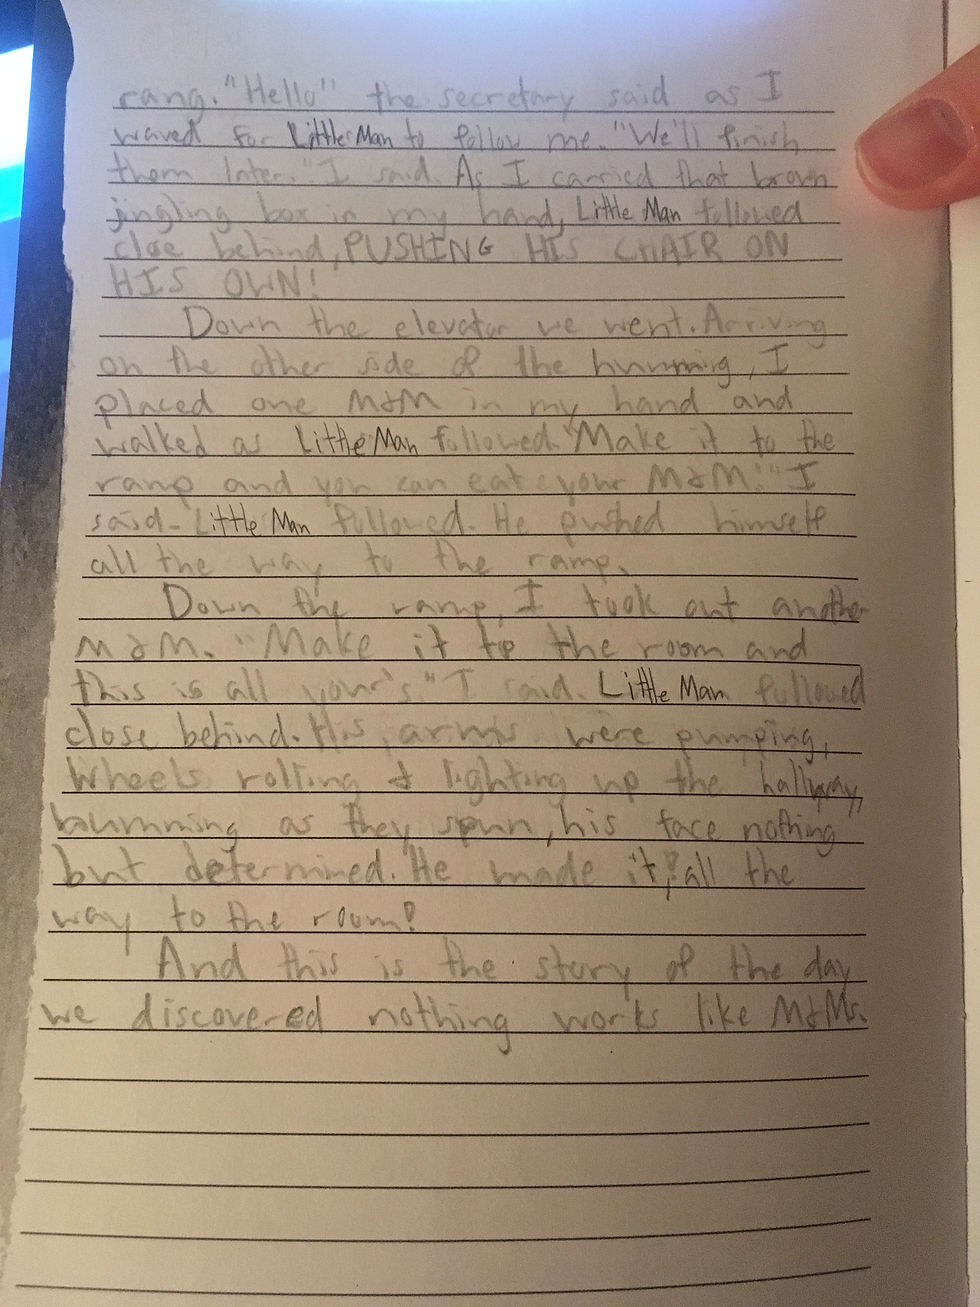 rang. "Hello" the secretary said as I
waved for Little Man to follow me. "We'll finish
them later." I said. As I carried that brown
jingling box in my hand, Little Man followed
close behind, PUSHING HIS CHAIR ON
HIS OWN!
Down the elevator we went. Arriving
on the other side of the humming, I
placed one M&M in my hand and
walked as Little Man followed. "Make it to the
ramp and you can eat your M&M!" I
said. Little Man followed. He pushed himself
all the way to the ramp.
Down the ramp, I took out another
M&M. "Make it to the room and
this is all your's" I said. Little Man followed
close behind. His arms were pumping,
wheels rolling & lighting up the hallway,
humming as they spun, his face nothing
but determined. He made it, all the
way to the room!
And this is the story of the day
we discovered nothing works like M&Ms.